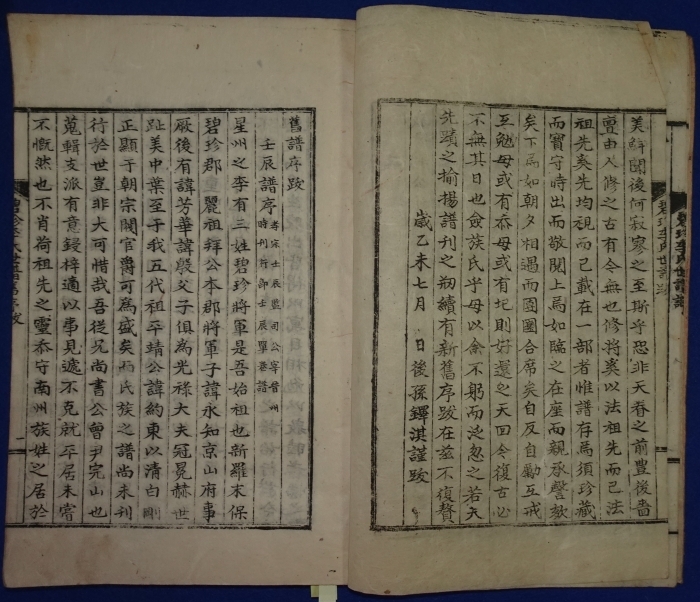 美鮮聞後何寂寥之至斯乎恐非天眷之前豊後嗇
亶由人修之古有令無也修將奚以法祖先而已法
祖先矣先均視而已載在一部者惟譜存焉須珍藏
而寶守時出而敬閱上焉如臨之在座而親承謦欬
矣下焉如朝夕相遇而團圞合席矣自反自勵互戒
互勉毋或有忝毋或有圮則好還之天回令復古必
不無其日也僉族氏乎毋以余不躬而泛忽之若夫
先蹟之揄揚譜刊之刱續有新舊序跋在玆不復贅
歲乙未七月 日後孫鐸淇謹跋
舊譜序跋
壬辰譜序
星州之李有三姓碧珍將軍是吾始祖也新羅末保
碧珍郡重麗祖拜公本郡將軍子諱永知京山府事
厥後有諱芳華諱殷父子俱為光祿大夫冠冕赫世
趾美中葉至于我五代祖平靖公諱約東以清白剛
正顯于朝宗闕官爵可為盛矣而氏族之譜尚未刊
行於世豈非大可惜哉吾從兄尚書公曾尹完山也
蒐輯支派有意鋟梓適以事見遞不克就平居未嘗
不慨然也不肖荷祖先之靈忝守南州族姓之居於